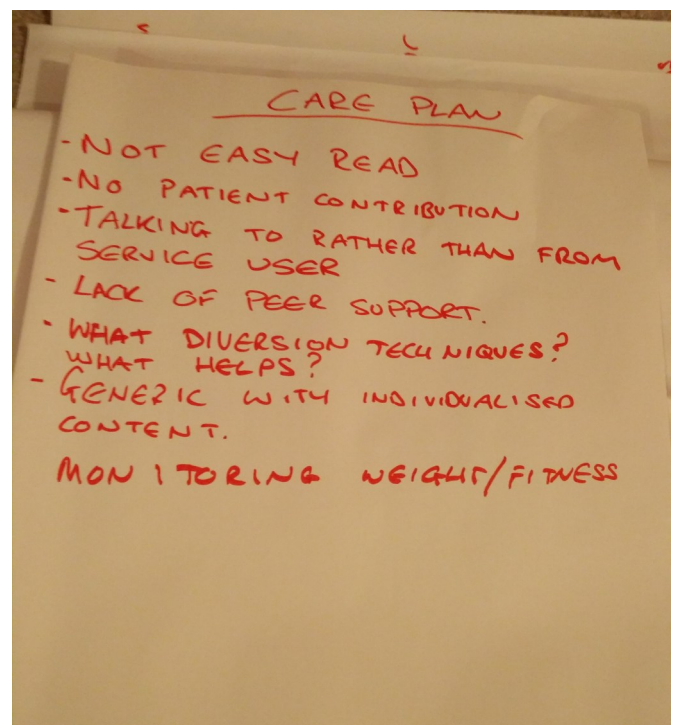 CARE PLAN
- NOT EASY READ
- NO PATIENT CONTRIBUTION
- TALKING TO RATHER THAN FROM
SERVICE USER
- LACK OF PEER SUPPORT.
- WHAT DIVERSION TECHNIQUES?
WHAT HELPS?
- GENERIC WITH INDIVIDUALISED
CONTENT.
MONITORING WEIGHT/FITNESS